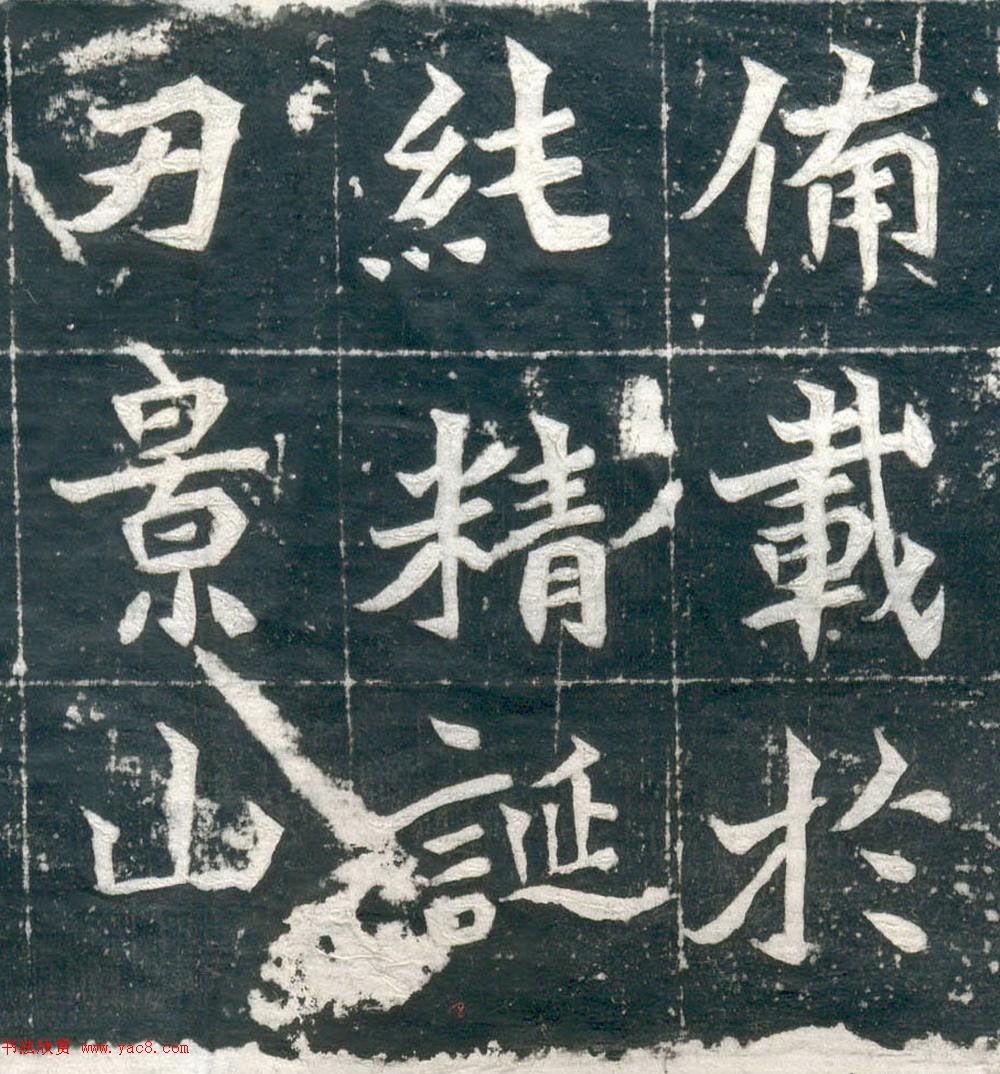 備載於
純精誕
景山
书法欣赏 www.yac8.com